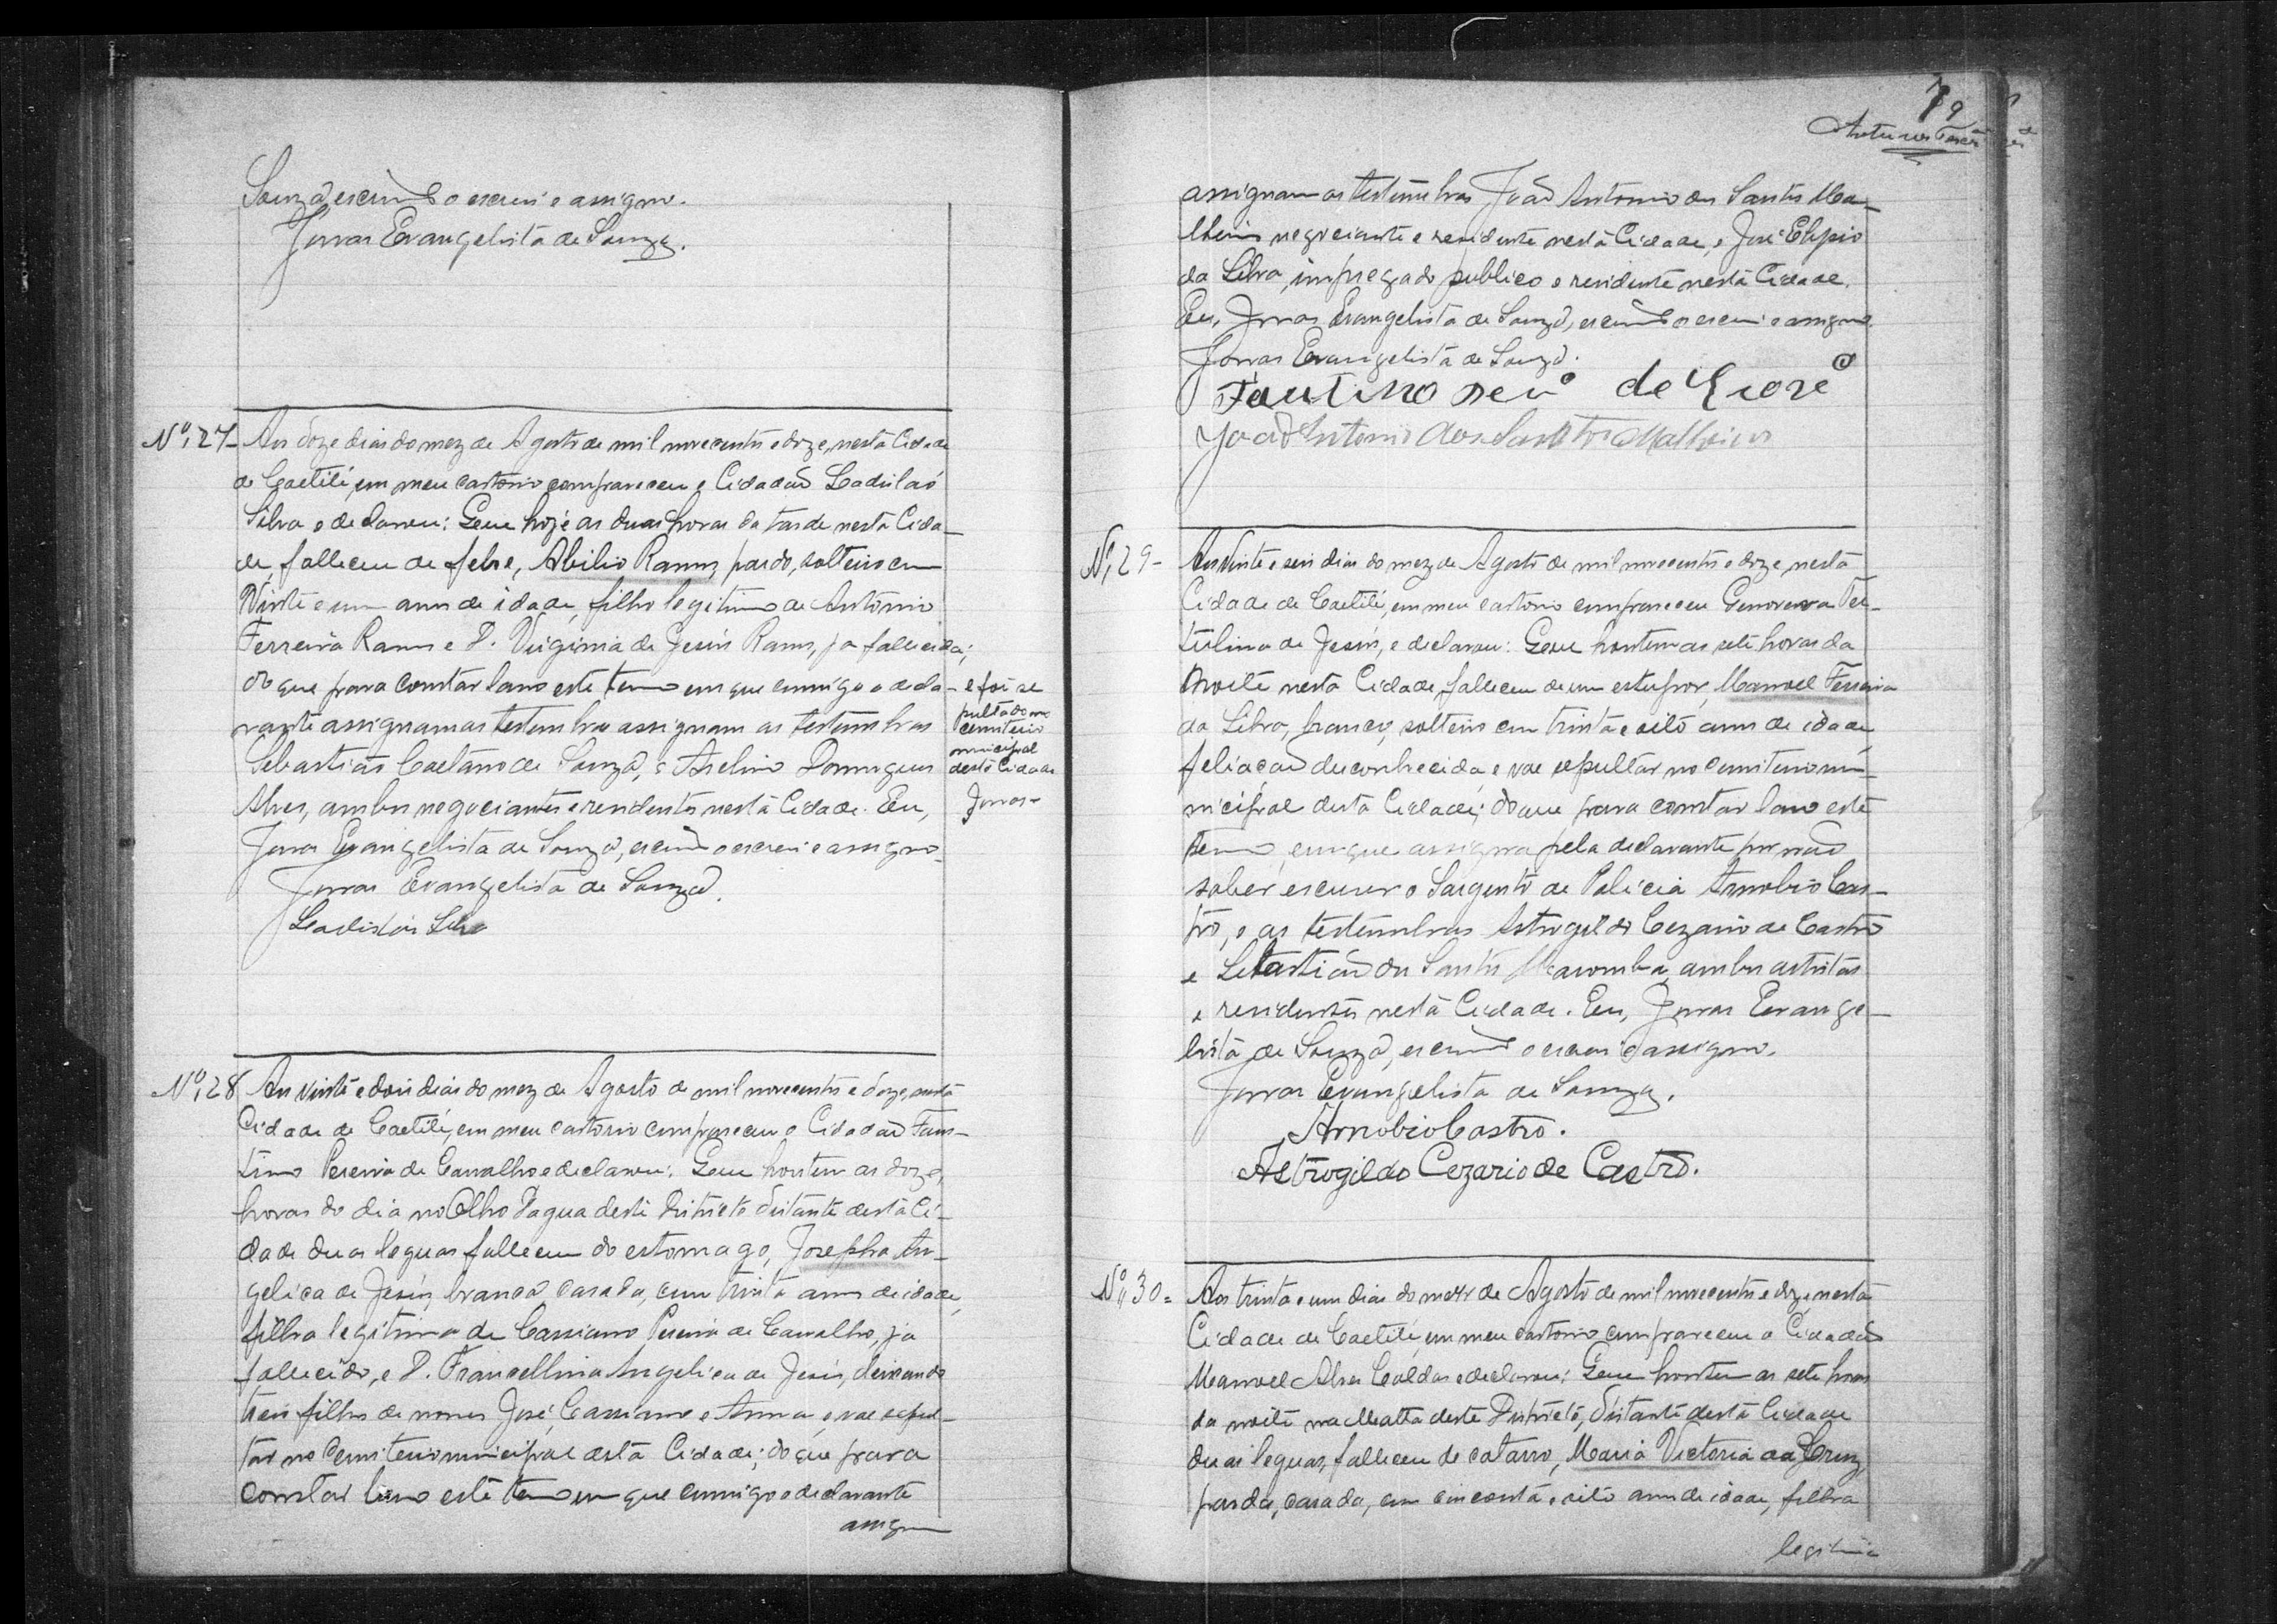 Souza, escrivão o escrevi e assigno.
Jonas Evangelista de Souza.
Nº 27- Aos doze dias do mez de Agosto de mil novecentos e doze, nesta Cidade
de Caetité, em meu cartorio compareceu o Cidadão Ladislaó
Silva e declarou: Que hoje as duas horas da tarde nesta Cida-
de, falleceu de febre, Abilio Ramos, pardo, solteiro com
Vinte e um annos de idade, filho legitimo de Antonio
Ferreira Ramos e D. Virginia de Jesús Ramos, ja fallecida;
do que para constar lavro este termo em que commigo o decla-
rante assignamas testemunhas assignam as testemunhas
Sebastião Caetano de Souza, e Anelino Domingues
Alves, ambos negociantes e residentes nesta Cidade. Eu,
Jonas Evangelista de Souza, escrivão o escrevi e assigno-
Jonas Evangelista de Souza.
Ladislau Silva
- e foi se
pultado no
cemiterio
municipal
desta Cidade
Jonas-
Nº 28 Aos vinte e dois dias do mez de Agosto de mil novecentos e doze, nesta
Cidade de Caetité, em meu cartorio compareceu o Cidadão Faus-
tino Pereira de Carvalho e declarou: Que hontem as doze
horas do dia no Olho d'agua deste Districto distante desta Ci-
dade duas leguas falleceu do estomago, Josepha An-
gelica de Jesús, branca casada, com trinta annos de idade,
filha legitima de Cassiano Pereira de Carvalho, ja
fallecido, e D. Francellina Angelica de Jesús, deixando
treis filhos de nomes José, Cassiano e Anna, e vae sepul-
tar no Cemiterio municipal desta Cidade; do que para
constar lavro este termo em que commigo o declarante
assignam
79
assignam as testemunhas João Antonio dos Santos Ma-
theus negociante e residente nesta Cidade, e José Elipio
da Silva, impregado publico e residente nesta Cidade.
Eu, Jonas Evangelista de Souza, escrivão o escrevi e assigno.
Jonas Evangelista de Souza.
João Antonio dos Santos Matheus
Nº 29- Aos vinte e seis dias do mez de Agosto de mil novecentos e doze, nesta
Cidade de Caetité, em meu cartorio compareceu Genoveva Ter-
tulina de Jesús, e declarou: Que hontem as sete horas da
Noite nesta Cidade, falleceu de um estupor, Manoel Ferreira
da Silva, branco, solteiro com trinta e oito annos de idade,
feliação desconhecida, e vae sepultar no Cemiterio mu-
nicipal desta Cidade; do que para constar lavro este
termo, em que assigna pela declarante por não
saber escrever o Sargento de Policia Arnobio Cas-
tro, e as testemunhas Astrogildo Cezario de Castro
e Sebastião dos Santos Maromba, ambos artistas
e residentes nesta Cidade. Eu, Jonas Evange-
lista de Souza, escrivão o escrevi e assigno.
Jonas Evangelista de Souza.
Arnobio Castro.
Astrogildo Cezario de Castro.
Nº 30= Aos trinta e um dias do mez de Agosto de mil novecentos e doze, nesta
Cidade de Caetité, em meu cartorio compareceu o Cidadão
Manoel Alves Caldas e declarou: Que hontem as sete horas
da noite na Matta deste Districto, distante desta Cidade
duas leguas, falleceu de catarro, Maria Victoria da Cruz,
parda, casada, com cincoenta e oito annos de idade, filha
legitima